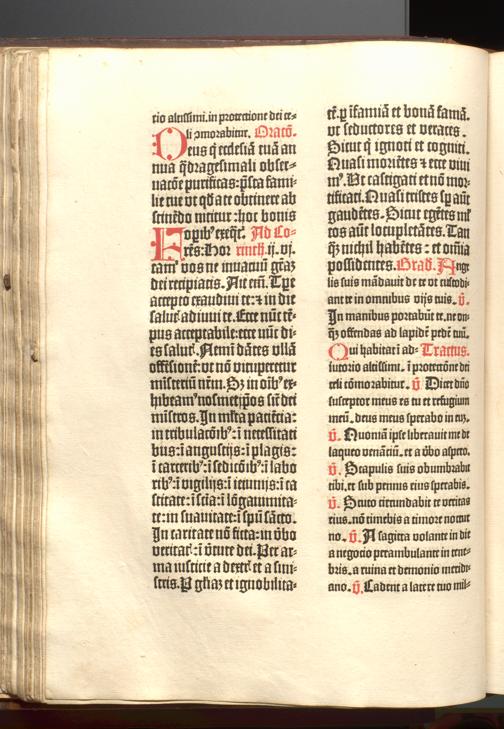 rio altissimi. in protectione dei ce⸗
li ꝯmorabitur. Oracō.
Deus q̄ ecclesiā tuā an
nua q̄dragesimali obser⸗
uacōe purificas: p̄sta fami⸗
lie tue vt qd̛ a te obtinere ab
stinēdo nititur: hoc bonis
operibꝰ exeq̄t᷑. Ad Co⸗
Fr̄es: Hor rinth. ij. vj.
tam᷑ vos ne ī vacuū gr̄az
dei recipiatis. Ait eni̅. T̄pe
accepto exaudiui te: ⁊ in die
salut᷑ adiuui te. Ecce nūc te⸗
pus acceptabile: ecce nūc di⸗
es salut᷑. Nemī dātes vllā
offensionē: vt nō vituperetur
misteriū nr̄m. Sz in oībꝰ ex⸗
hibeamꝰ nosmetip̄os sic̄ dei
mīstros. In ml̄ta paciētia:
in tribulacōibꝰ: ī necessitati
bus: ī angustijs: ī plagis:
ī carceribꝰ: ī sedicōibꝰ: ī labo
ribꝰ: ī vigilijs: ī ieiunijs: ī ca
stitate: ī scīa: ī lōgaīmita⸗
te: in suauitate: ī sp̄u sācto.
In caritate nō ficta: in v̄bo
veritat᷑: ī v̄tute dei. Per ar⸗
ma iusticie a dextr᷑ et a sini⸗
stris. P gl̄iaz et ignobilita⸗
tē. ꝑ īfamiā et bonā famā.
vt seductores et veraces.
Sicut q̄ ignoti et cogniti.
Quasi moriētes ⁊ ecce viui
mꝰ. Vt castigati et nō mor⸗
tificati. Quasi tristes sp̄ aūt
gaudētes. Sicut egētes ml̄
tos aūt locupletātes. Tan
q̄z nichil habētes: et omīa
possidentes. Grad. Ange
lis suis mādauit de te vt custodi⸗
ant te in omnibus vijs tuis. v̄.
In manibus portabūt te. ne vn⸗
q̄z offendas ad lapidē pedē tuū.
Qui habitat ī ad⸗ Tractus.
iutorio altissimi. ī protectōne dei
celi cōmorabitur. v̄. Dicet dn̄o
susceptor meus es tu et refugium
meū. deus meus sperabo in eū.
v̄. Quoniā ipse liberauit me de
laqueo venātiū. et a v̄bo aspero.
v̄. Scapulis suis obumbrabit
tibi. et sub pennis eius sperabis.
v̄. Scuto circundabit te veritas
eius. nō timebis a timore noctur
no. v̄. A sagitta volante in die
a negocio perambulante in tene⸗
bris. a ruina et demonio meridi⸗
ano. v̄. Cadent a latere tuo mil⸗